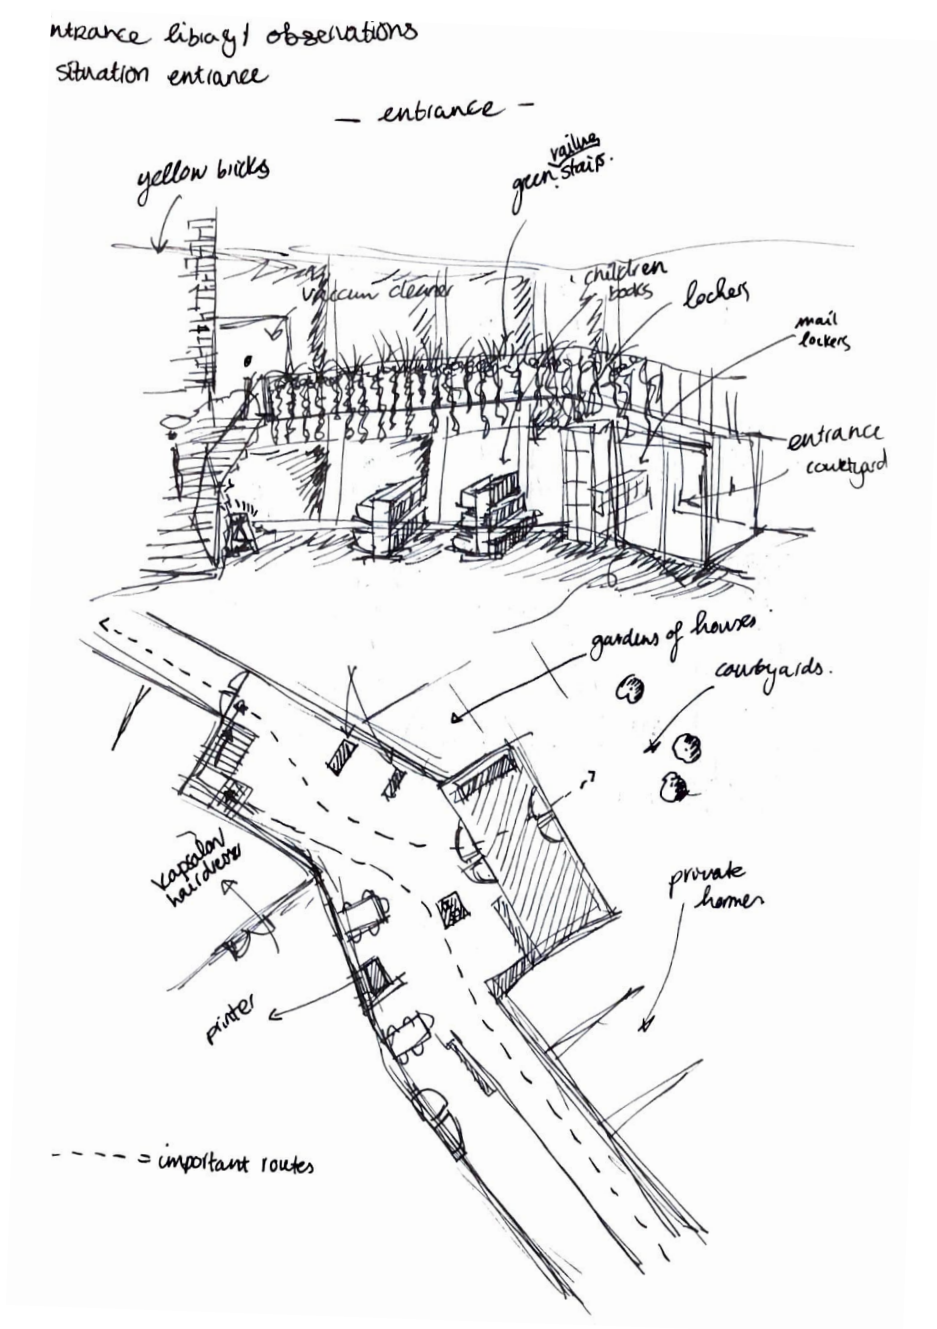 ntrance library / observations
situation entrance
— entrance —
yellow bricks
railing
green stairs.
vaccum cleaner
children
books
lockers
mail
lockers
entrance
courtyard
gardens of houses
courtyards.
kapsalon
hairdresser
private
homes
printer
---- = important routes